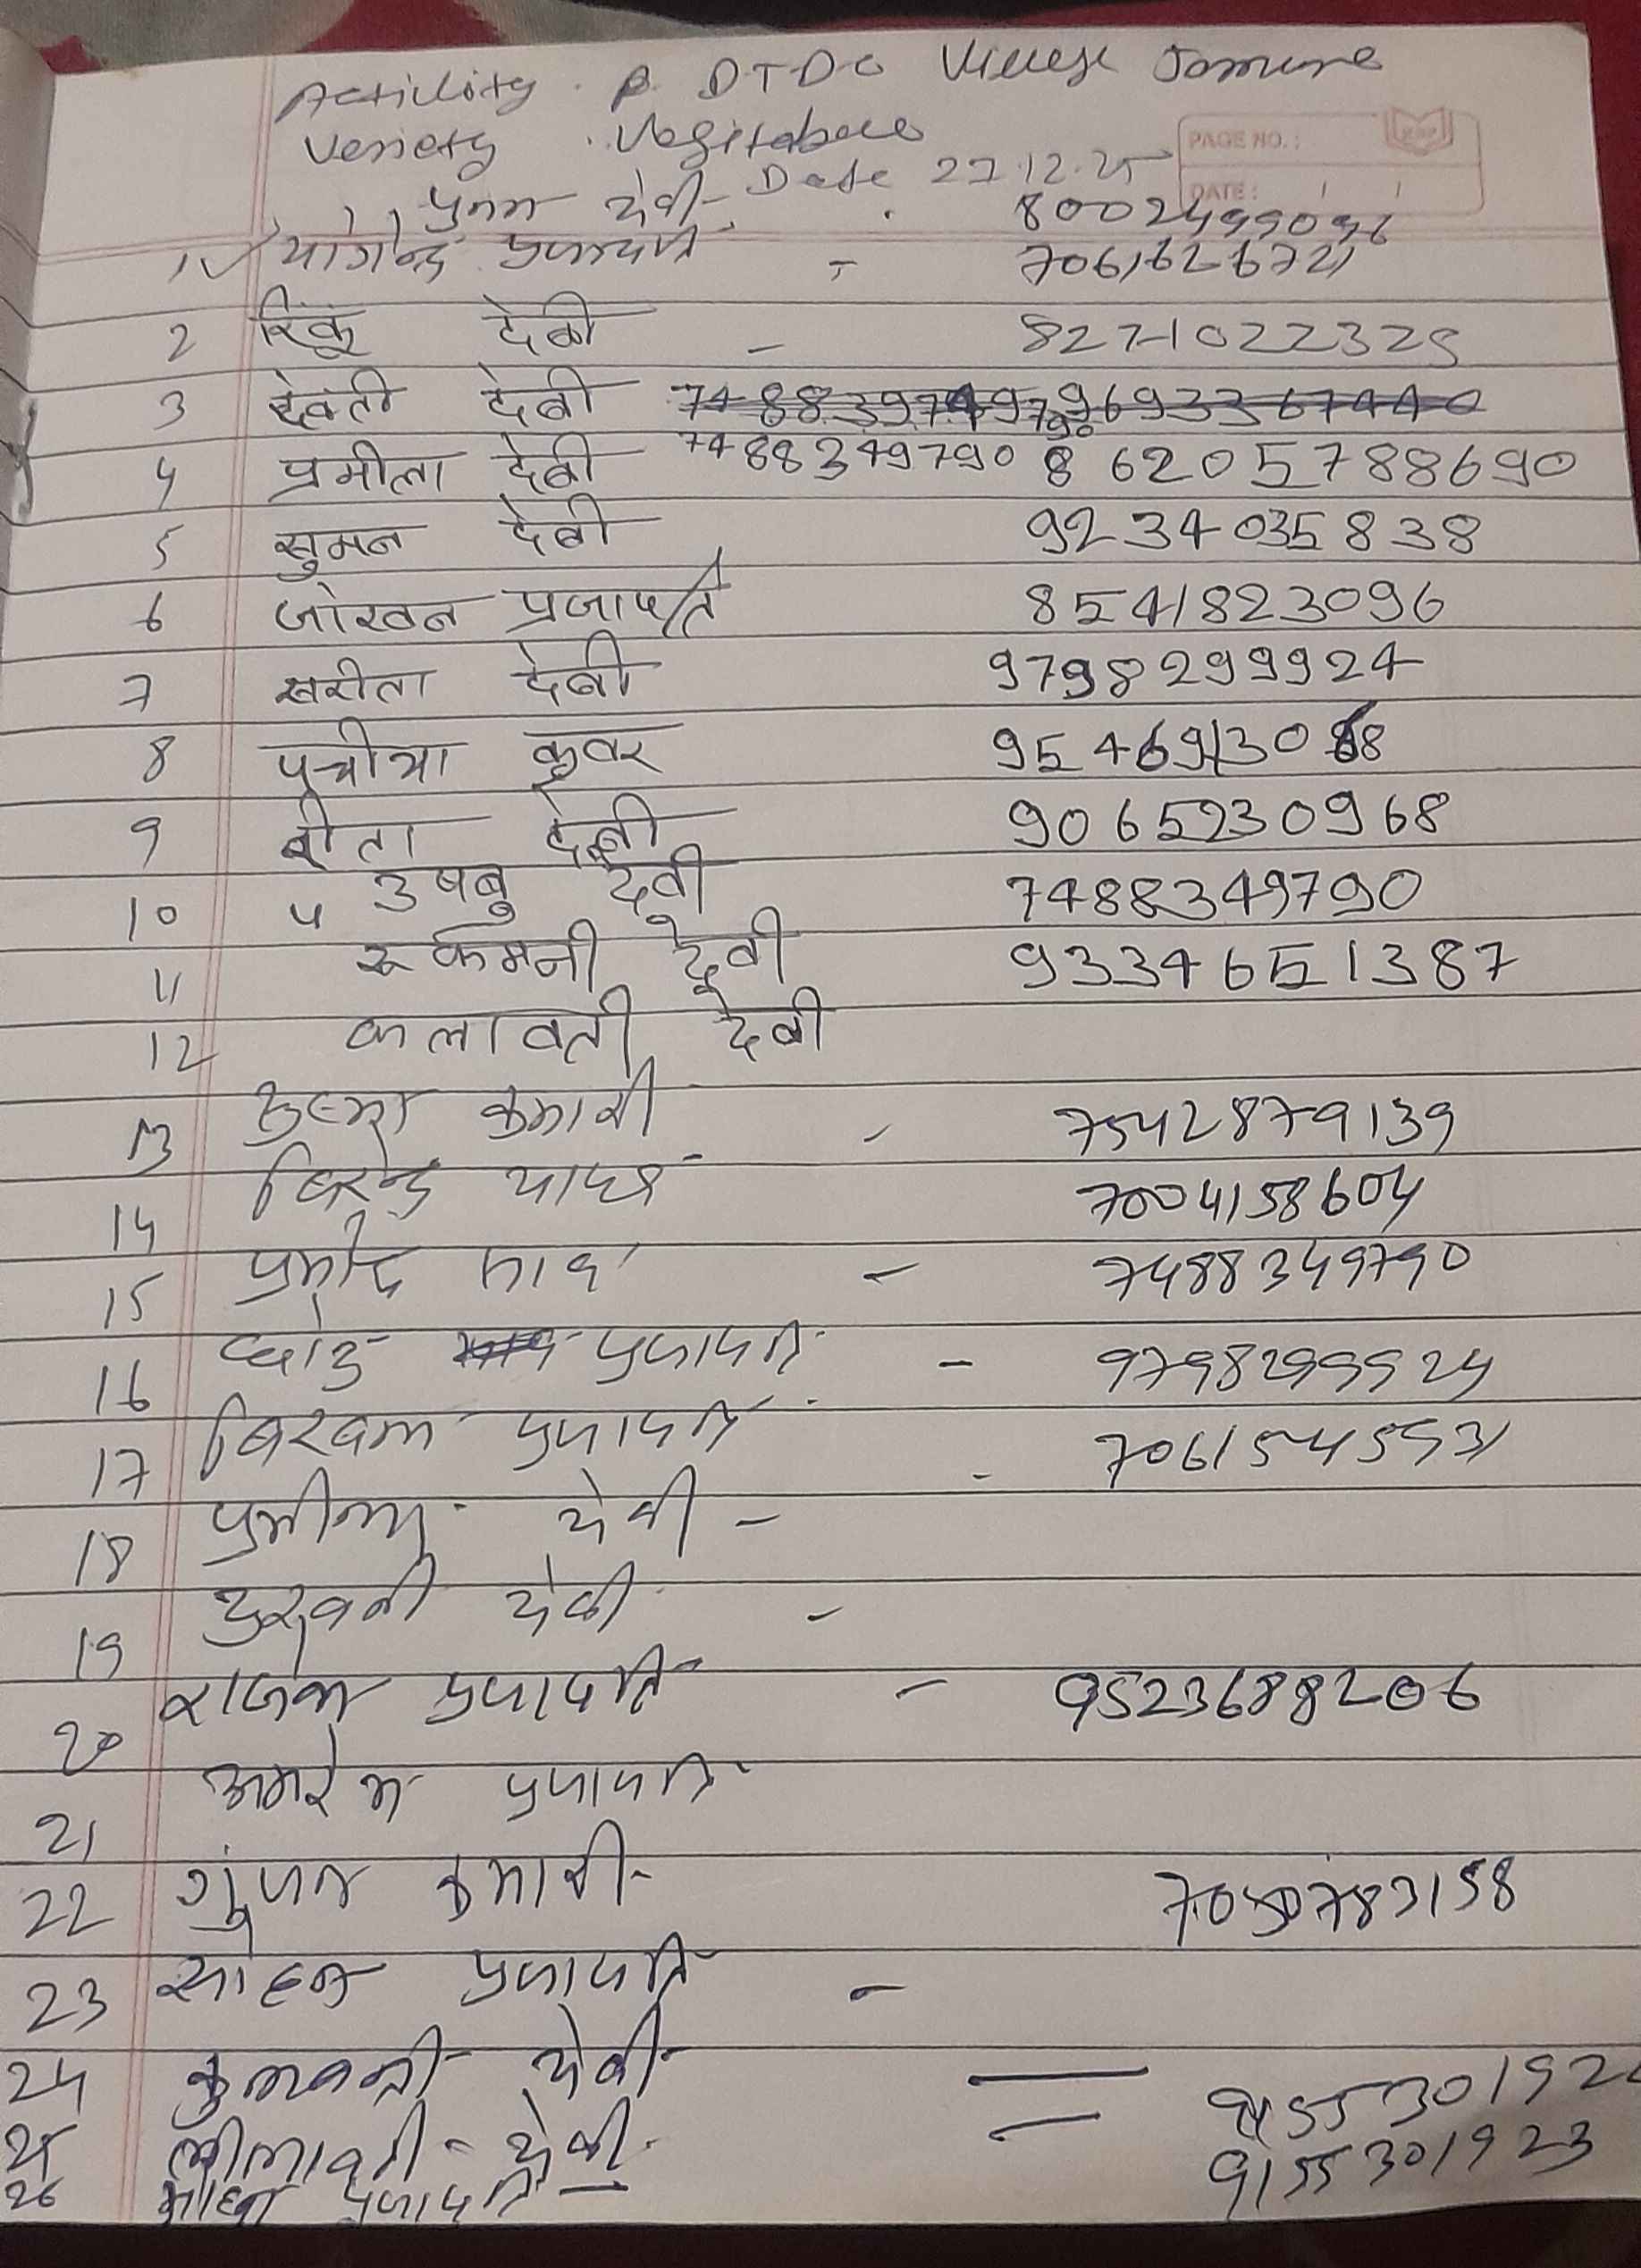 Activity . DTDC Village Jamune
Veriety . Vegitabale
PAGE NO.:
Date 27.12.25
DATE:
पुनम देवी - 8002499096
1 योगेन्द्र प्रजापति - 7061626721
2 रिंकू देवी - 8271022325
3 रेवती देवी
4 प्रमीला देवी 7488349790 8 6205788690
5 सुमन देवी 9234035838
6 जोखन प्रजापति 8541823096
7 सरीता देवी 9798299924
8 कुवर
9 रीता देवी 9065230968
10 देवी 7488349790
11 रूकमनी देवी 9334651387
12 कलावती देवी
13 कुमारी - 7542879139
14 बिरेन्द्र यादव 7004158604
15 प्रमोद - 7488349790
16 प्रजापति - 9798299924
17 प्रजापति - 7061545531
18 देवी -
19 देवी -
20 प्रजापति - 9523688206
21 प्रजापति
22 गुंजन कुमारी - 7050783158
23 सोहन प्रजापति -
24 देवी -
25 लीलावती - देवी 915530192
26 मोहन प्रजापति - 9155301923